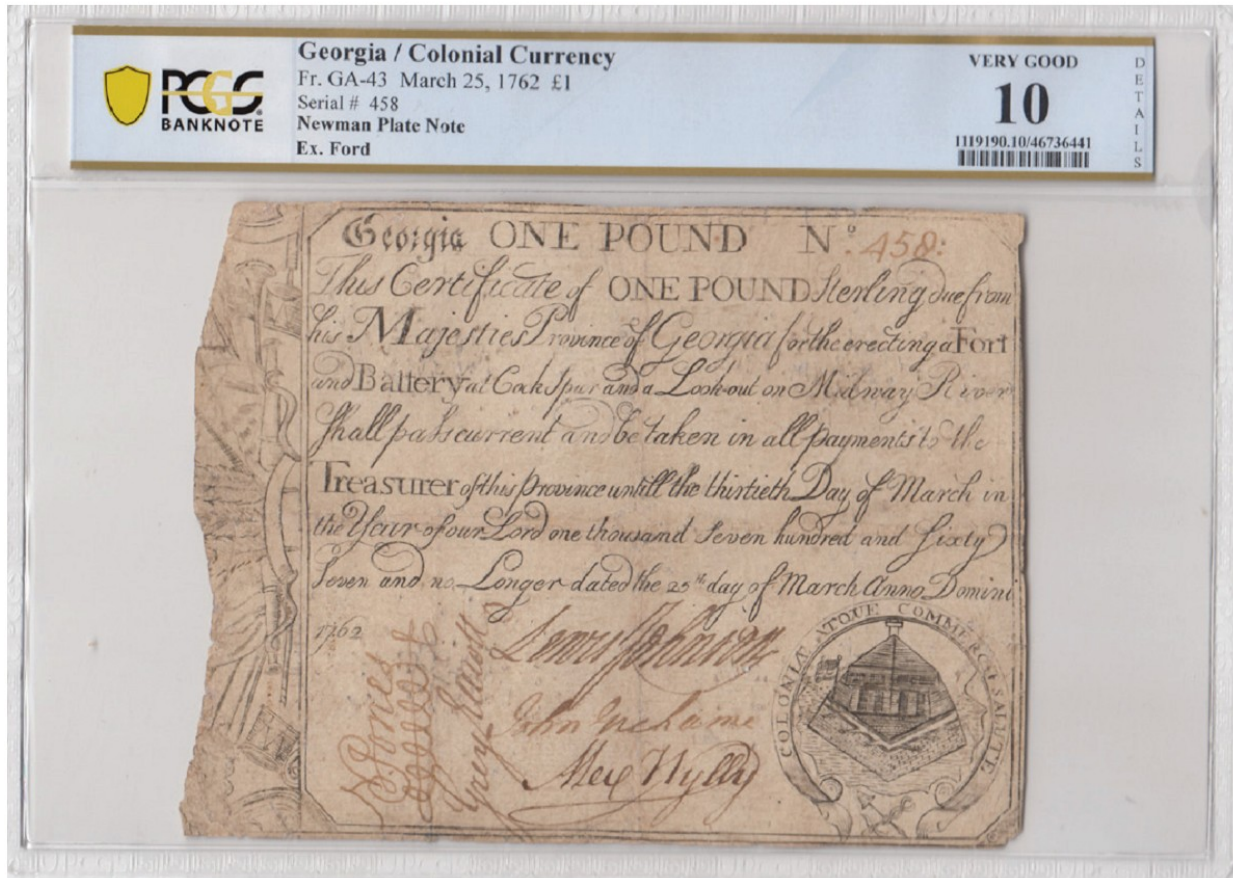 Georgia / Colonial Currency
Fr. GA-43 March 25, 1762 £1
Serial # 458
Newman Plate Note
Ex. Ford
PCGS
BANKNOTE
VERY GOOD
10
1119190.10/46736441
DETAILS
Georgia ONE POUND Nº. 458:
This Certificate of ONE POUND Sterling due from
his Majesties Province of Georgia for the erecting a Fort
and Battery at Cock Spur and a Look-out on Midway River
Shall pass current and be taken in all payments to the
Treasurer of this Province untill the thirtieth Day of March in
the Year of our Lord one thousand Seven hundred and Sixty
Seven and no Longer dated the 25th day of March Anno Domini
1762
Lewis Johnson
John Grahame
Alex Wylly
Grey Elliott
N. Jones
COLONIÆ ATQUE COMMERCI SALUTE